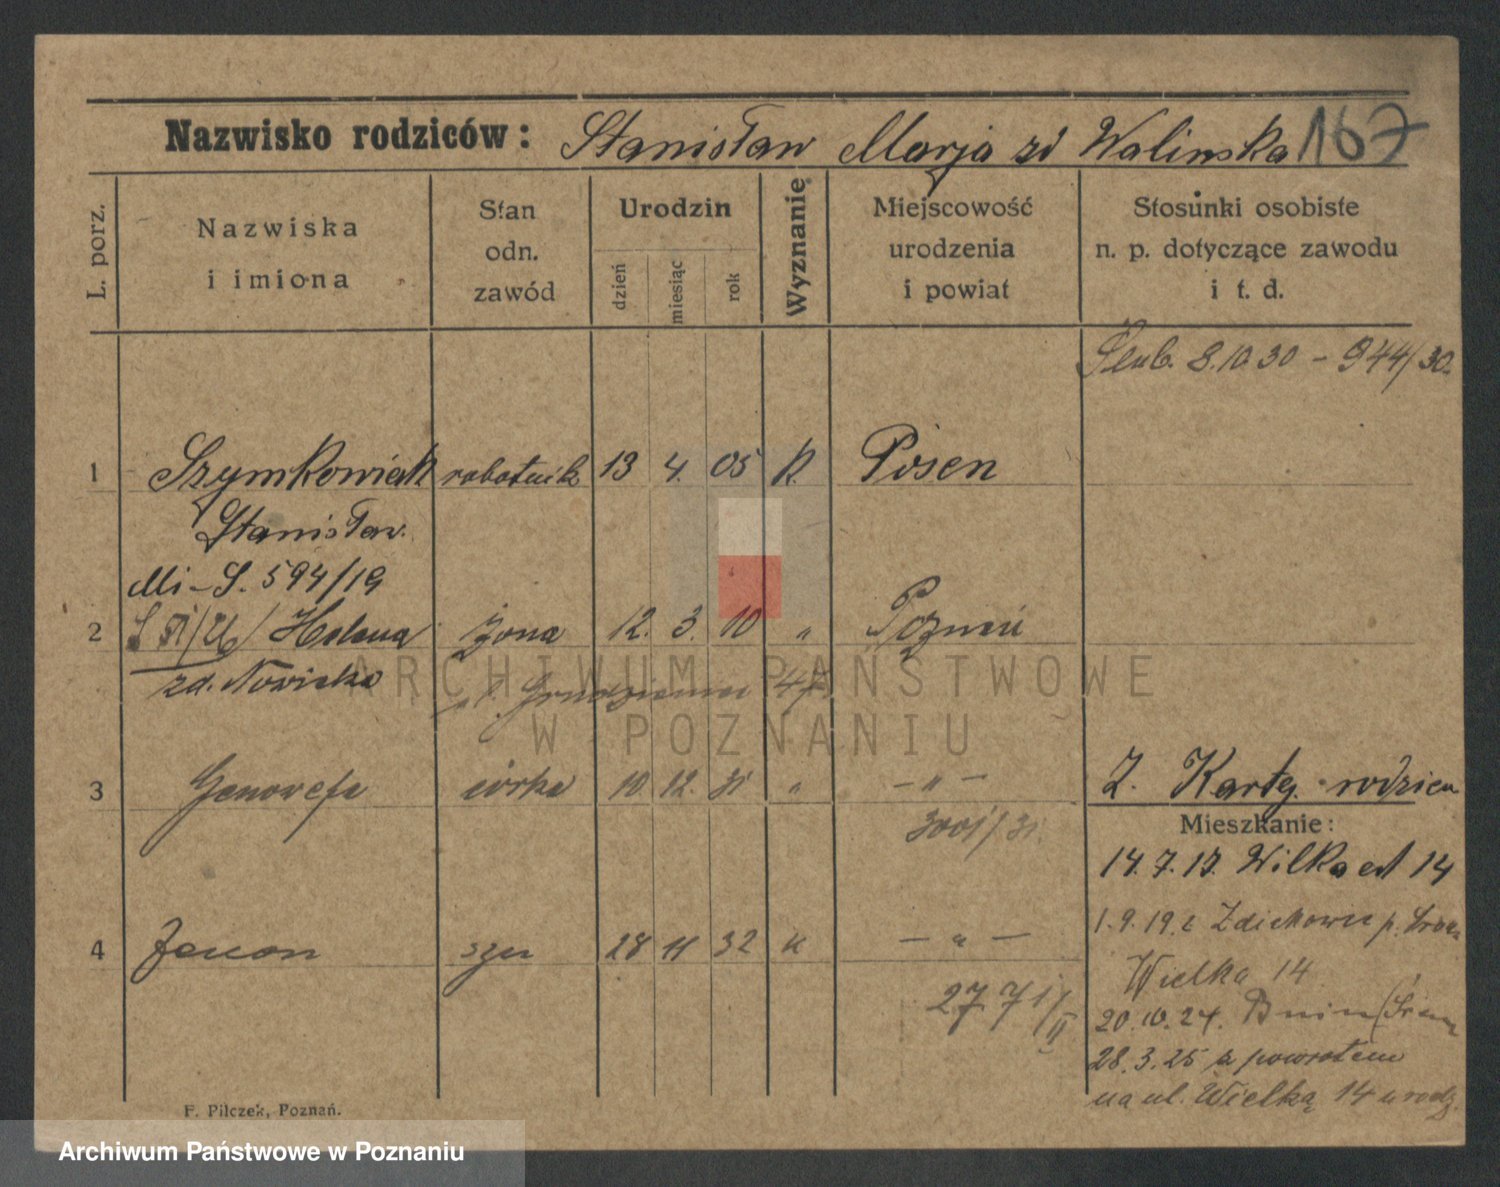 Nazwisko rodziców: Stanisław Marja zd Walinska 167
L. porz.
Nazwiska
i imiona
Stan
odn.
zawód
Urodzin
dzień
miesiąc
rok
Wyznanie
Miejscowość
urodzenia
i powiat
Stosunki osobiste
n. p. dotyczące zawodu
i t. d.
8.10 30 – 944/30.
1 Szymkowiak robotnik 13 4. 05 k. Posen
Stanisław.
Mi – S. 594/19
2 Helena żona 12. 3. 10 " Poznań
zd. Nowicka
Grudzieniec
ARCHIWUM PAŃSTWOWE
W POZNANIU
3 Genowefa córka 10 12. 31 " – " –
Z. Karty rodzicu
3001/31.
Mieszkanie:
14.7.17. Wilka 14
1.9.19. z Zdiechowic p. Środa
4 Zenon syn 28 11 32 " – " –
Wielka 14
2771/II
20.10.24. Bnin (Śrem
28.3.25 z powrotem
na ul. Wielką 14 u rodz.
F. Pilczek, Poznań.
Archiwum Państwowe w Poznaniu